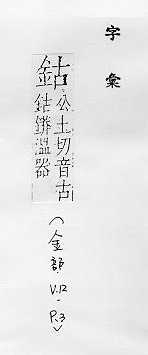 字彙
鈷公土切音古
鈷鏻溫器
(金部 V.12 - P.3)